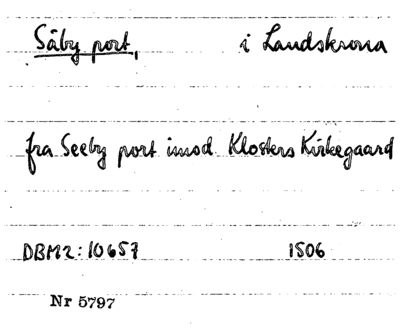 Säby port, i Landskrona
fra Seeby port imod Klosters Kirkegaard
DBM2:10657 1506
Nr 5797